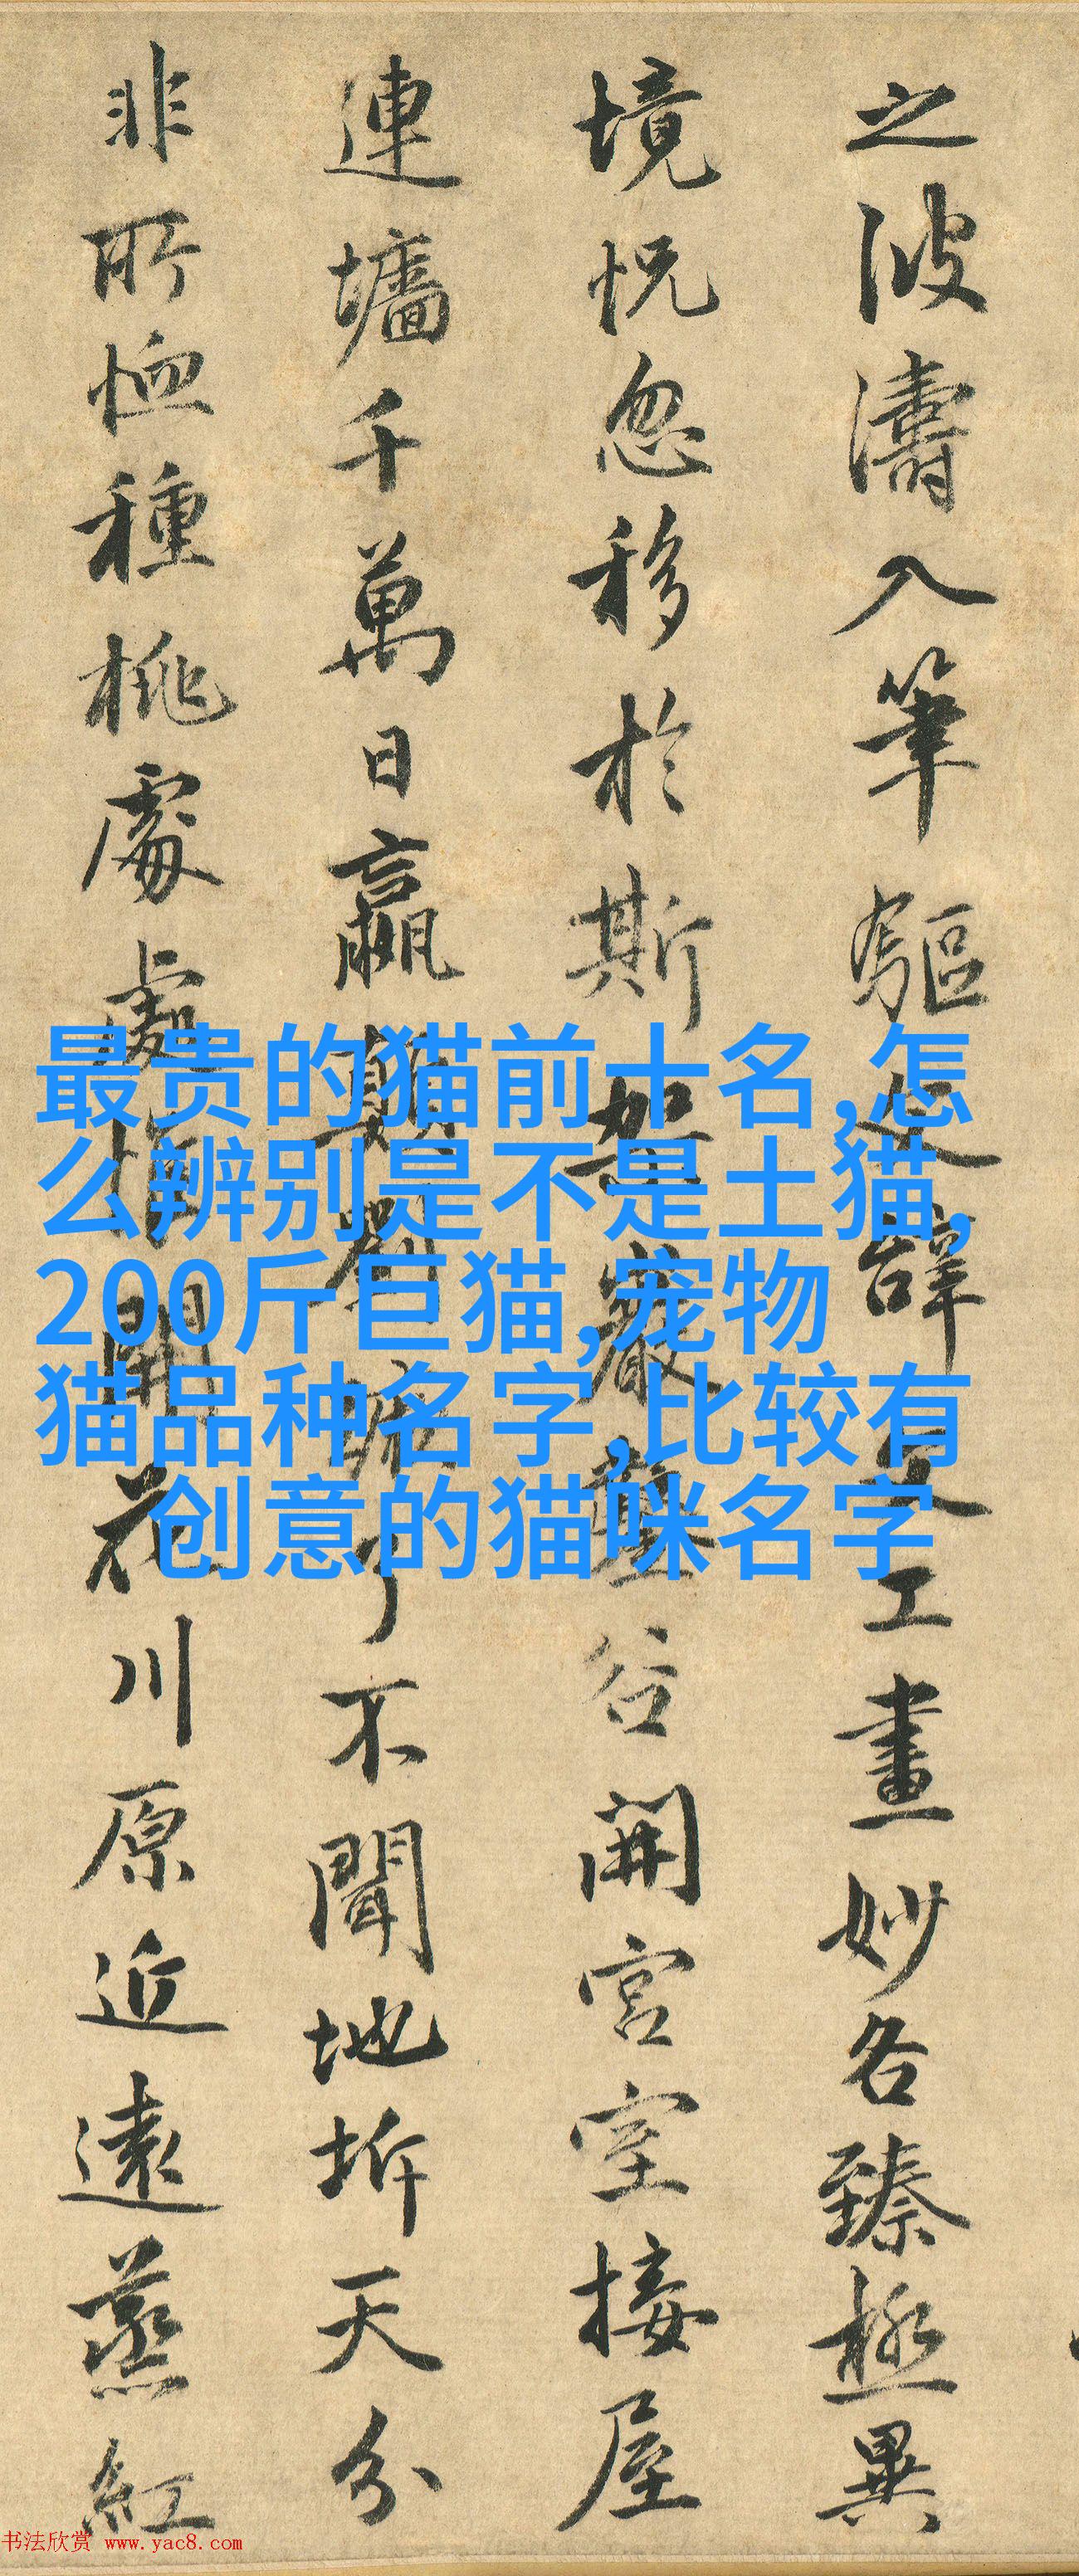 之波濤入筆驅文辭文工畫妙各臻極異
境怳忽移於斯架巖鑿谷開宮室接屋
連墻千萬日嬴顛劉蹶了不聞地坼天分
非所恤種桃處處惟開花川原近遠蒸紅
最贵的猫前十名,怎
么辨别是不是土猫,
200斤巨猫,宠物
猫品种名字,比较有
创意的猫咪名字
书法欣赏 www.yac8.com